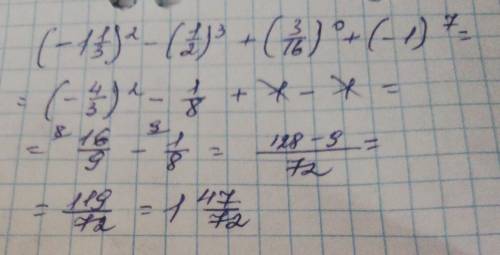 (-1 1/3)² - (1/2)³ + (3/16)⁰ + (-1)⁷ =
= (-4/3)² - 1/8 + 1 - 1 =
= ⁸ 16/9 - ⁹ 1/8 = 128 - 9/72 =
= 119/72 = 1 47/72